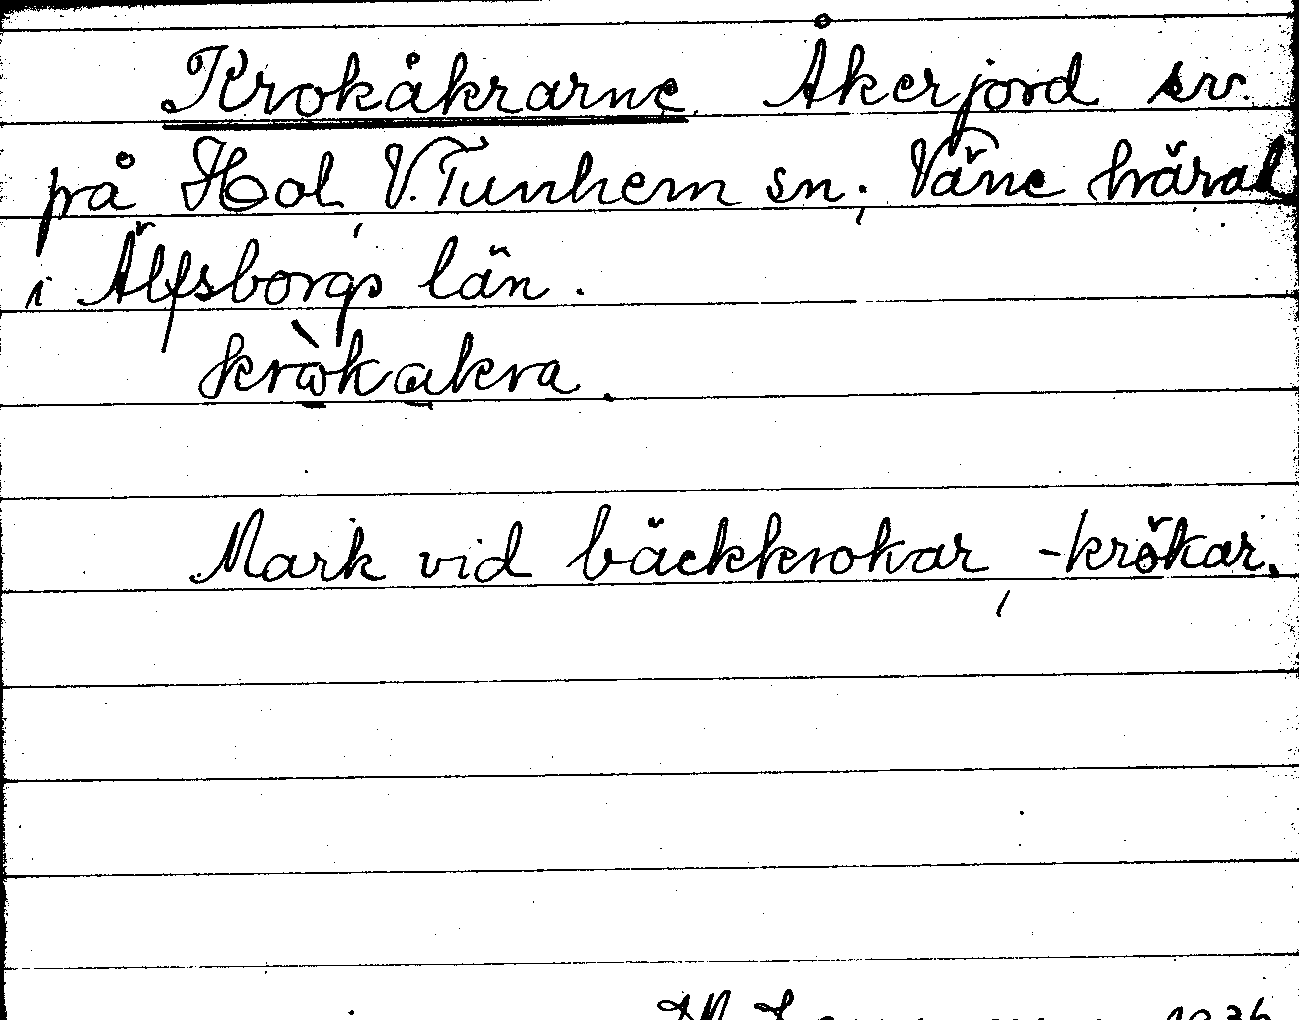 Krokåkrarne. Åkerjord sv.
på Hol, V. Tunhem sn; Väne härad
i Älfsborgs län.
krὼkakra.
Mark vid bäckkrokar, -krökar.